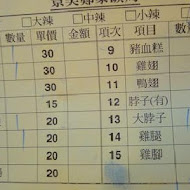 □大辣 □中辣 □小辣
數量 單價 金額 項次 項目
30 9 豬血糕
30 10 雞翅
30 11 鴨翅
15 12 脖子(有)
20 13 大脖子
20 14 雞腿
20 15 雞腳